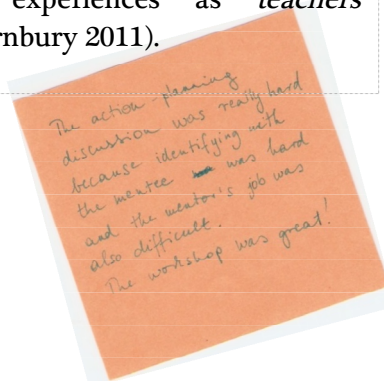 experiences as teachers
rnbury 2011).
The action-planning
discussion was really hard
because identifying with
the mentee was hard
and the mentor's job was
also difficult.
The workshop was great!